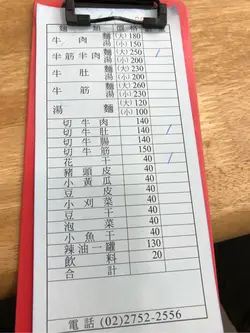 麵 類 價 格
牛 肉 麵 (大) 180
湯 (小) 150
牛筋半肉 麵 (大) 250
湯 (小) 200
牛 肚 麵 (大) 230
湯 (小) 200
牛 筋 麵 (大) 260
湯 (小) 230
湯 麵 (大) 120
(小) 100
切 牛 肉 140
切 牛 肚 140
切 牛 腸 140
切 牛 筋 150
花 干 40
豬 頭 皮 40
小 黃 瓜 40
豆 皮 40
小 刈 菜 40
豆 干 40
泡 菜 40
小 魚 干 40
辣 油 一 罐 130
飲 料 20
合 計
電 話 (02)2752-2556